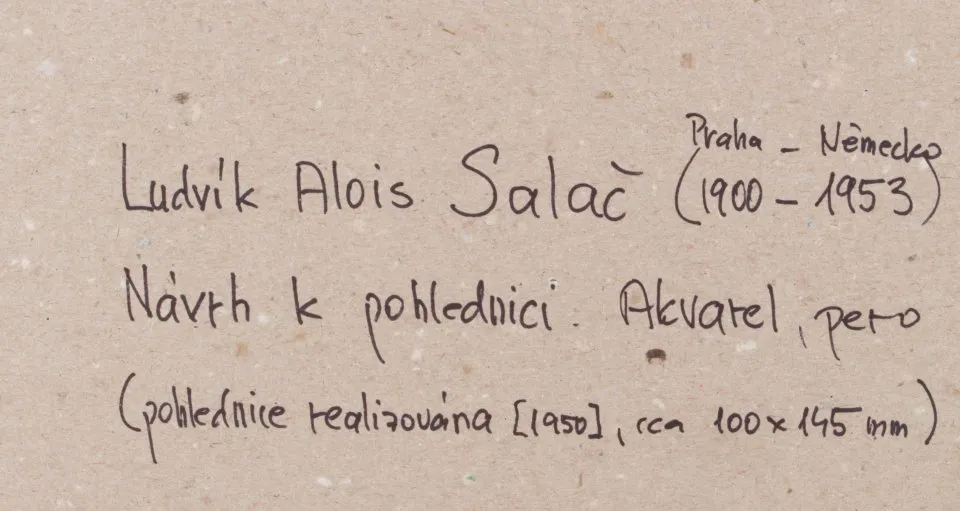 Praha – Německo
Ludvík Alois Salač (1900 – 1953)
Návrh k pohlednici. Akvarel, pero
(pohlednice realizována [1950], cca 100 x 145 mm)